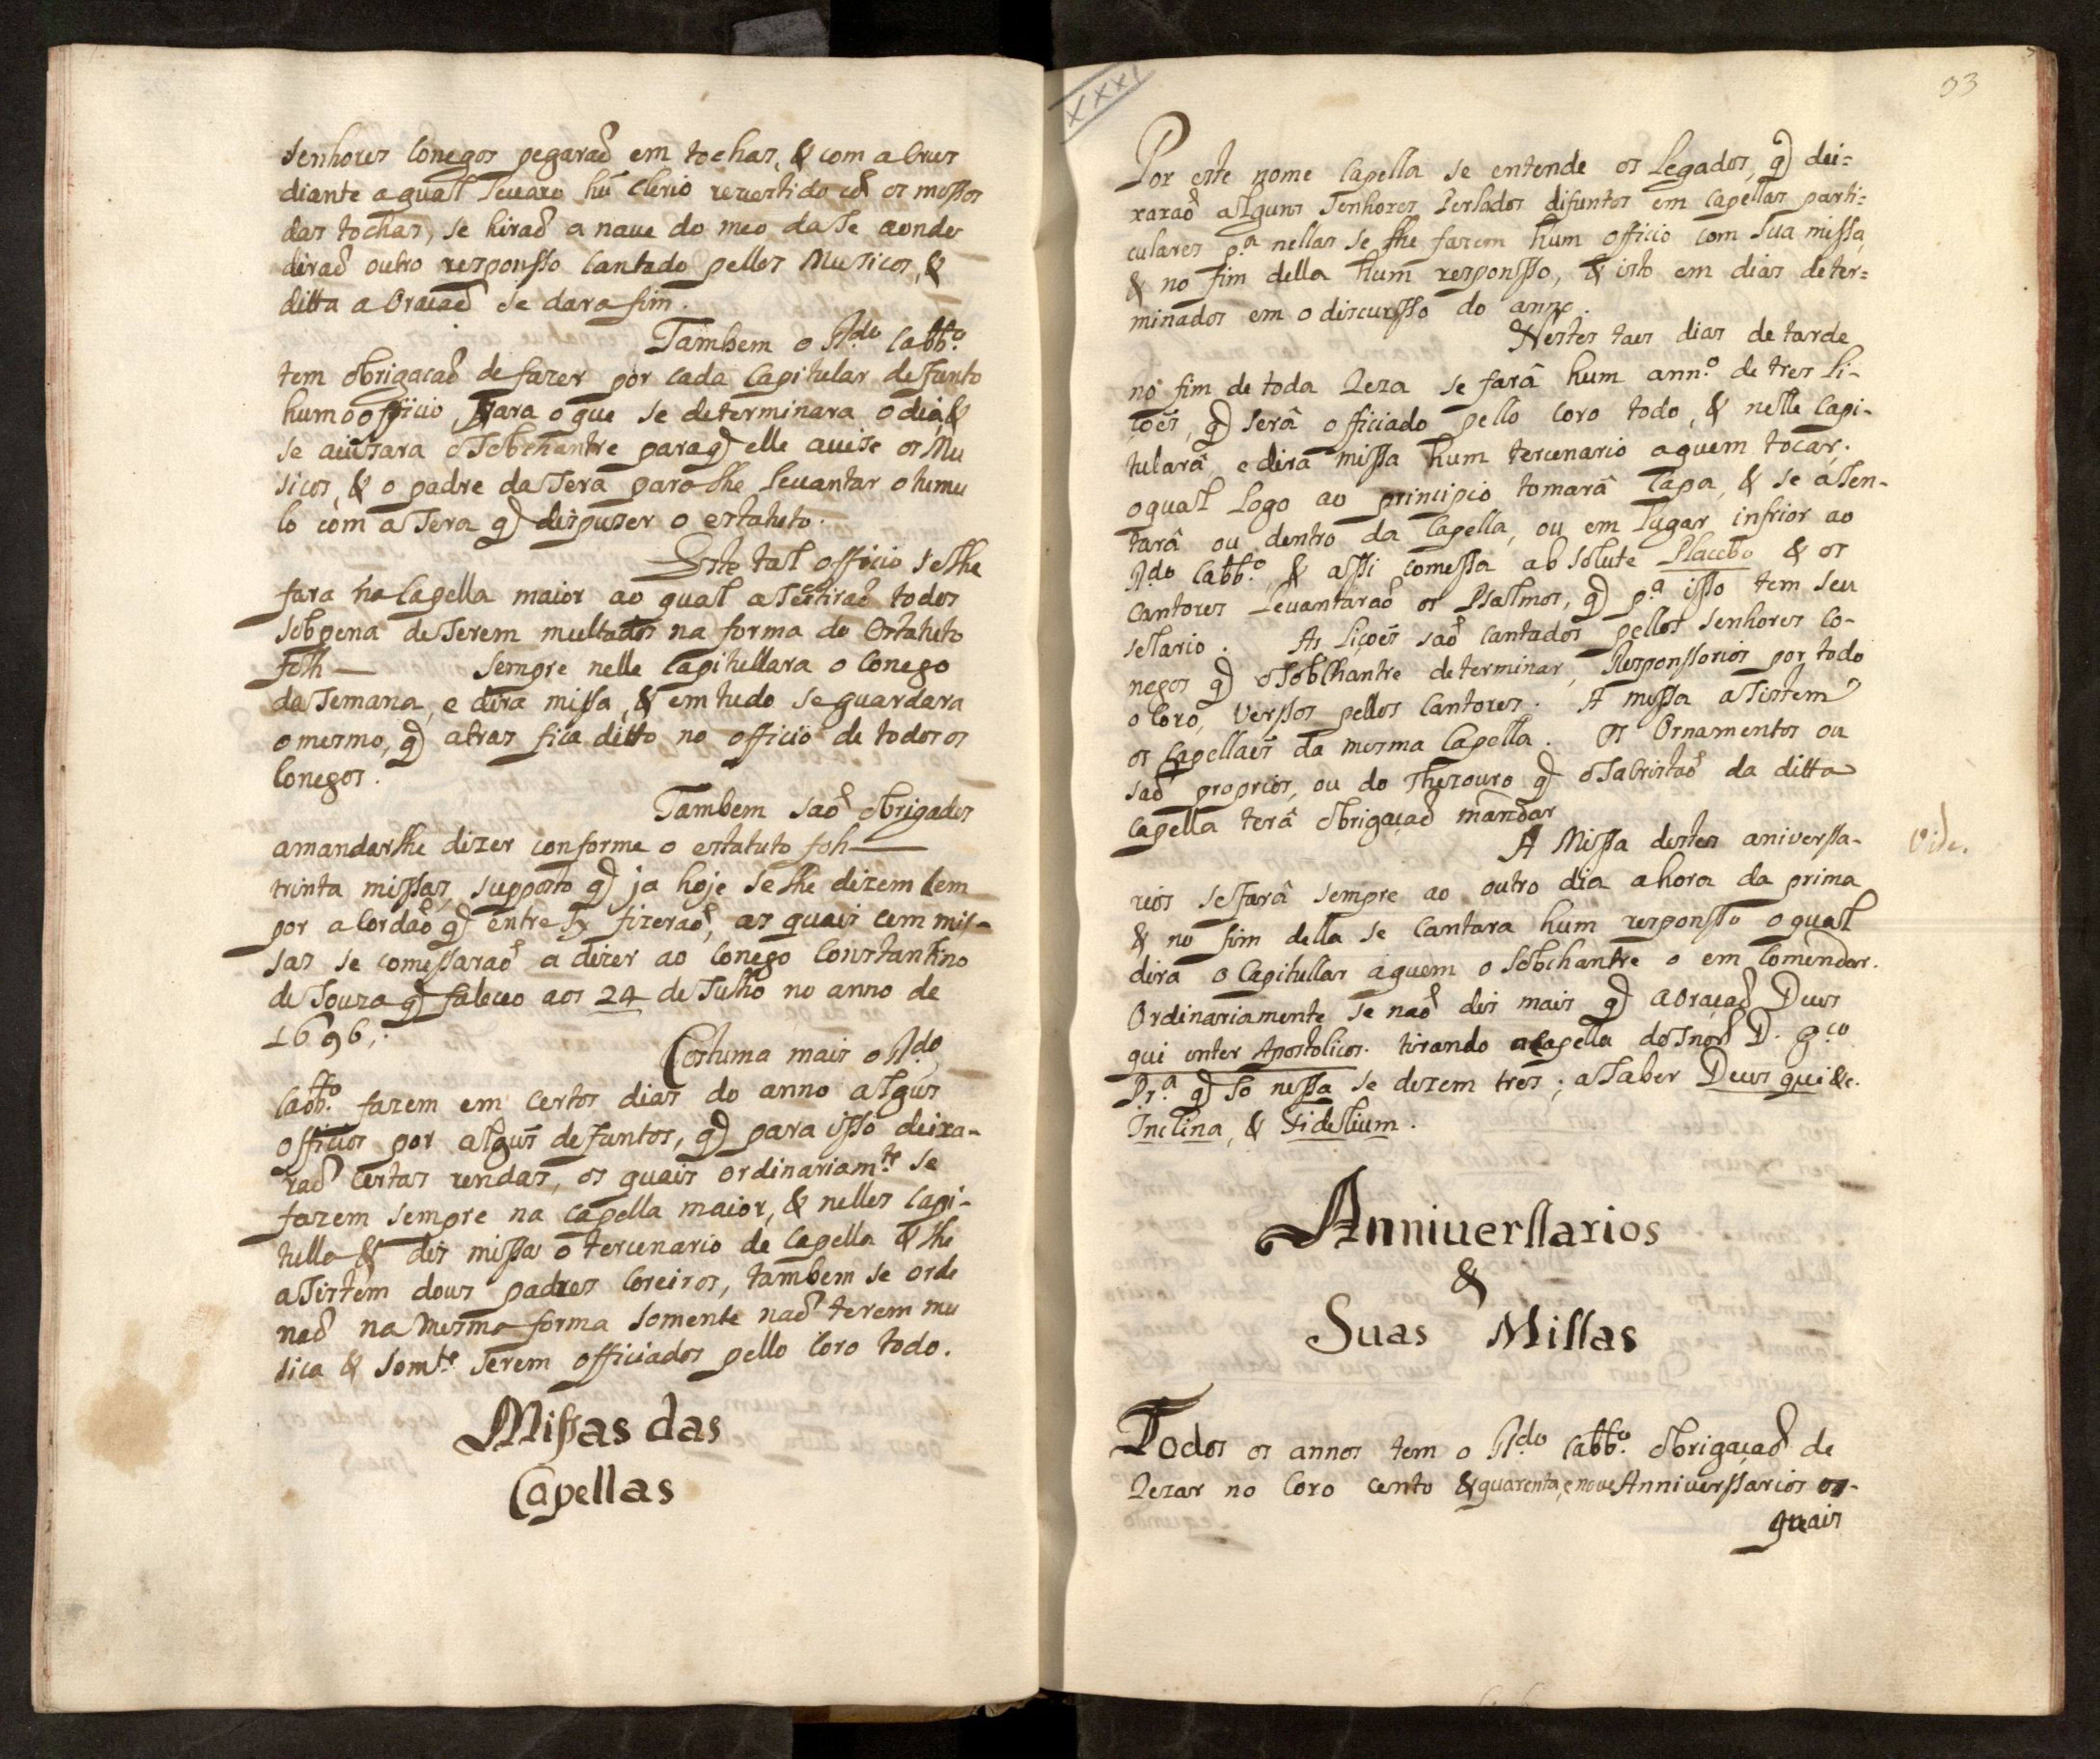 senhores Conegos pegaraõ em tochas, & com a Crus
diante a qual leuara hũ Clerio reuestido cõ os mossos
das tochas, se hiraõ a naue do meo da Se aonde
diraõ outro responsso Cantado pellos Musicos, &
ditta a Oraçaõ se dara fim.
Tambem o R.do Cabb.o
tem obrigacaõ de fazer por cada Capitular defunto
hum officio, para o que se determinara o dia, &
se auissara o Sobchantre para q̃ elle auise os Mu
sicos, & o padre da Sera para lhe leuantar o tumu
lo com a Sera q̃ dispuzer o estatuto.
Este tal officio se lhe
fara na Capella maior ao qual aSestiraõ todos
sobpena de Serem multados na forma do Estatuto
folh— Sempre nelle Capitullara o Conego
da Semana, e dira missa, & em tudo se guardara
o mesmo, q̃ atras fica ditto no officio de todos os
Conegos.
Tambem saõ obrigados
amandarlhe dizer conforme o estatuto foh—
trinta missas, supposto q̃ ja hoje se lhe dizem Cem
por aCordaõ q̃ entre Sy fizeraõ, as quais cem mis-
sas se comessaraõ a dizer ao Conego Constantino
de Souza q̃ faleceo aos 24 de Julho no anno de
1696;
Costuma mais o R.do
Cabb.o fazem em certos dias do anno algũs
officios por algũs defuntos, q̃ para isso deixa-
raõ certas rendas, os quais ordinariam.te se
fazem sempre na capella maior, & nelles Capi-
tulla & dis missa o tercenario de Capella & lhe
aSistem dous padres Coreiros, tambem se orde
naõ na mesma forma somente naõ terem mu
sica & som.te serem officiados pello Coro todo.
Missas das
Capellas
XXXI
93
Por este nome Capella se entende os Legados, q̃ dei=
xaraõ alguns Senhores Perlados difuntos em Capellas parti=
culares p.a nellas se lhe fazem hum officio com sua missa,
& no fim della hum responsso, & isto em dias deter=
minados em o discursso do anno.
Nestes taes dias de tarde
no fim de toda Reza se farâ hum ann.o de tres li-
çoẽs, q̃ serâ officiado pello Coro todo, & nelle Capi-
tularâ, e dirâ missa hum tercenario a quem tocar;
o qual logo ao principio tomarâ Capa, & se aSen-
tarâ ou dentro da Capella, ou em lugar infrior ao
R.do Cabb.o, & assi comessa absolute Placebo & os
Cantores levantaraõ os Psalmos, q̃ p.a isso tem seu
sellario. As liçoẽs saõ cantados pellos senhores Co-
negos q̃ o Sobchantre determinar, Responssorios por todo
o Coro, Verssos pellos Cantores. A missa aSistem
os Capellaẽs da mesma Capella. Os Ornamentos ou
saõ proprios, ou do Thezouro q̃ o Sacristaõ da ditta
capella terâ obrigaçaõ mandar
A Missa destes aniverssa-
Vide.
rios se farâ sempre ao outro dia a hora da prima
& no fim della se Cantara hum responsso o qual
dira o Capitullar a quem o Sobchantre o emComendar.
Ordinariamente se naõ dis mais q̃ a Oraçaõ Deus
qui inter Apostolicos. tirando a Capella do Snõr D. g.co
Pr.a q̃ so nessa se dizem tres; a Saber Deus qui &c.
Inclina, & Fidelium.
Anniuerssarios
&
Suas Missas
Todos os annos tem o R.do Cabb.o obrigaçaõ de
Rezar no Coro cento & quarenta, e noue Anniverssarios os-
quais